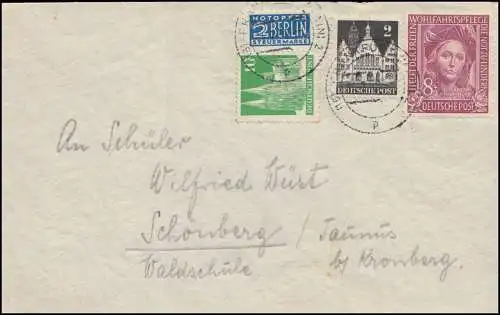 NOTOPFER
2 BERLIN
STEUERMARKE
10
2
DEUTSCHE POST
WOHLFAHRTSPFLEGE
8
DEUTSCHE POST
An Schüler
Wilfried Wüst
Schönberg / Taunus
Waldschule b/ Kronberg.